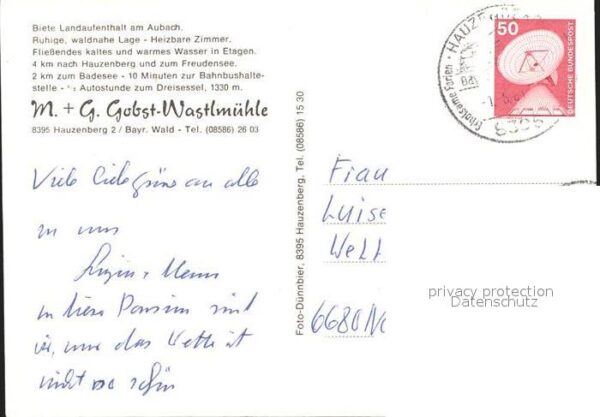 Biete Landaufenthalt am Aubach.
Ruhige, waldnahe Lage - Heizbare Zimmer.
Fließendes kaltes und warmes Wasser in Etagen.
4 km nach Hauzenberg und zum Freudensee.
2 km zum Badesee - 10 Minuten zur Bahnbushalte-
stelle - Autostunde zum Dreisessel, 1330 m.
M. + G. Gobst-Wastlmühle
8395 Hauzenberg 2 / Bayr. Wald - Tel. (08586) 26 03
Viele liebe Grüße an alle
in dieser Pension sind
wir, nur das Wetter ist
nicht so schön
Foto-Dünnbier, 8395 Hauzenberg, Tel. (08586) 15 30
Frau
Luise
Welt
6680
50
DEUTSCHE BUNDESPOST
Erholsame Ferien
privacy protection
Datenschutz